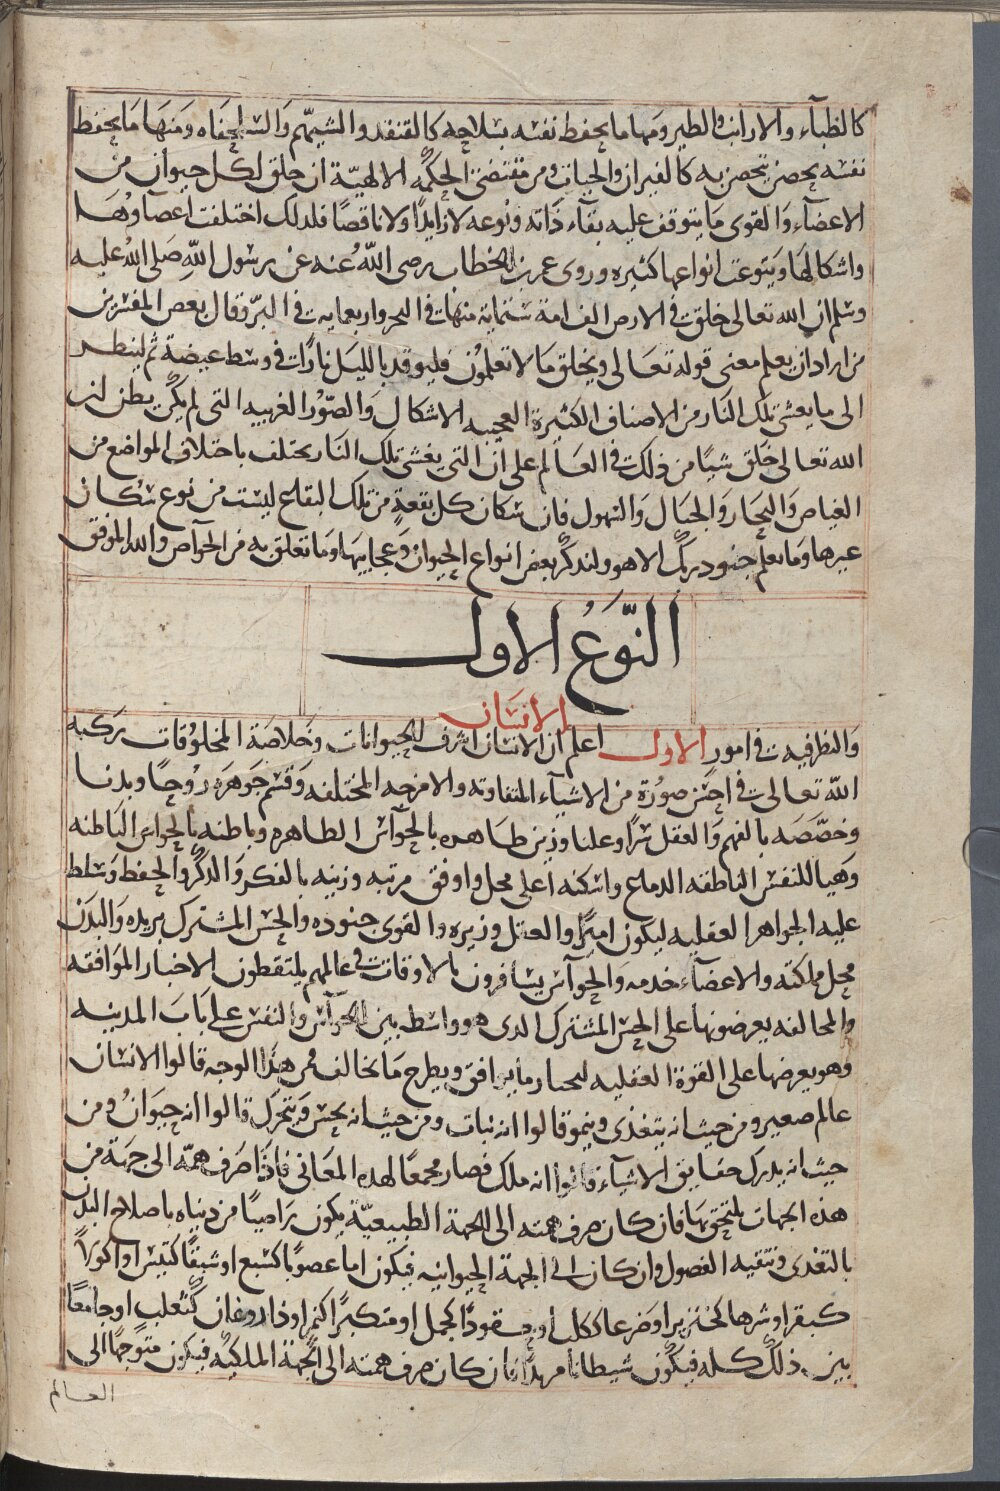 كالظباء والارانب والطير ومنها ما يحفظ نفسه بسلاحه كالقنفد والشيهم والسلحفاه ومنها ما يحفظ
نفسه بحصن يتحصن به كالفيران والحيات ومن مقتضى الحكمه الالهية ان خلق لكل حيوان من
الاعضآء والقوى ما يتوقف عليه بقآء ذاته ونوعه لا زايدًا ولا ناقصًا فلدلك اختلفت اعصاوها
واشكالها وتنوعت انواعها كثيره وروى عمر بن الخطاب رصى الله عنه عن رسول الله صلى الله عليه
وسلم ان الله تعالى خلق في الارص الف امة ستماية منها في البحر واربعمايه في البر وقال بعص المفسرين
من اراد ان يعلم معنى قوله تعالى ويخلق ما لا تعلمون فليوقد بالليل نارًا في وسط عيضة ثم لينطر
الى ما يعشى تلك النار من الاصناف الكثيرة العجيبه الاشكال والصور الغريبه التى لم يكن يطن ان
الله تعالى خلق شيًا من ذلك في العالم على ان التى يغشى تلك النار يختلف باختلاف المواضع من
الغياص والبحار والجبال والسهول فان سكان كل بقعةٍ من تلك البقاع ليست من نوع سكان
عيرها وما يعلم جنود ربك الا هو ولندكر بعض انواع الحيوان وعجايبها وما تعلق به من الخوآص والله الموفق
النوع الاول
الانسان
والنظر فيه في امور الاول اعلم ان الانسان اشرف الحيوانات وخلاصة المخلوقات ركبه
الله تعالى في احسن صورة من الاشيآء المتفاوته والامزجه المختلفه وقسم جوهره روحًا وبدنا
وخصصه بالفهم والعقل سرًا وعلنا وزين طاهره بالحوآس الطاهره وباطنه بالحواس الباطنه
وهيا للنفس الناطقه الدماع واسكنه اعلى محل واوفق مرتبه وزينه بالفكر والدكر والحفظ وسلط
عليه الجواهر العقليه ليكون اميرًا والعقل وزيره والقوى جنوده والحس المشترك بريده والبدن
محل مملكته والاعضآء خدمه والحوآس يسافرون بالاوقات في عالمهم يلتقطون الاخبار الموافقه
والمخالفه يعرضونها على الحس المشترك الدى هو واسطه بين الحوآس والنفس على باب المدينه
وهو يعرضها على القوة العقليه لتحتار ما يوافق ويطرح ما يخالف فمن هذا الوجه قالوا الانسان
عالم صعير ومن حيث انه يتغذى وينمو قالوا انه نبات ومن حيث انه يحس ويتحرك قالوا انه حيوان ومن
حيث انه يدرك حقايق الاشيآء قالوا انه ملك فصار مجمعًا لهده المعانى فاذا صرف همته الى جهة من
هذه الجهات يلتحق بها فان كان صرف همته الى الجهة الطبيعية يكون راضيًا من دنياه باصلاح البدن
بالتغدى وتنقيه الفصول وان كان الى الجهة الحيوانيه فيكون اما عصوبًا كسبع او شبقًا كتيس او اكولًا
كبقر او شرها كخنزير او ضرعا ككلب او حقودًا كجمل او متكبرًا كنمر او ذا روغان كثعلب او جامعًا
بين ذلك كله فيكون شيطانا مريدًا فان كان صرف همته الى الجهة الملكيه فيكون متوجهًا الى
العالم